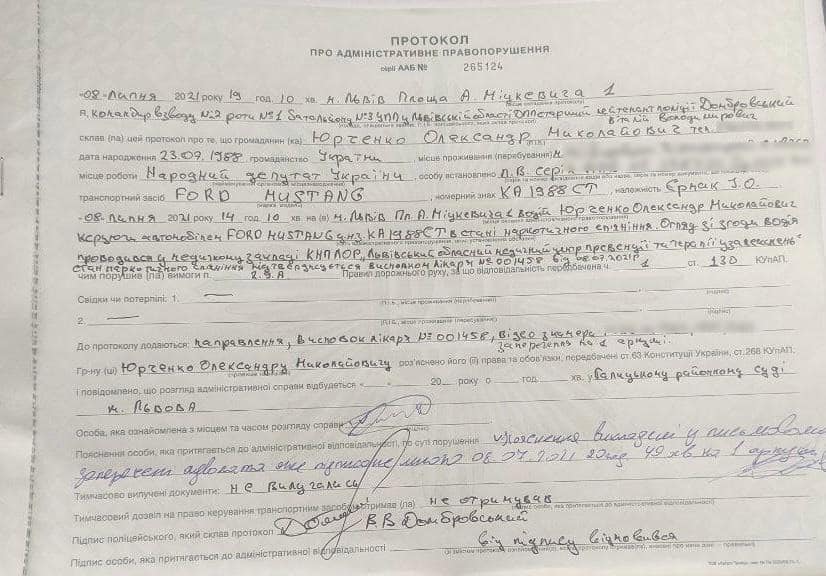 ПРОТОКОЛ
ПРО АДМІНІСТРАТИВНЕ ПРАВОПОРУШЕННЯ
серії ААБ № 265124
08 Липня 2021 року 19 год. 10 хв. м. Львів Площа А. Міцкевича 1
Я, командир взводу №2 роти №1 батальйону №3 УПП у Львівській області ДПП старший лейтенант поліції Домбровський
Віталій Володимирович
склав (ла) цей протокол про те, що громадянин (ка) Юрченко Олександр Миколайович тел.
дата народження 23.07.1988 громадянство України, місце проживання (перебування)
місце роботи Народний депутат України, особу встановлено П.В. серія
транспортний засіб FORD MUSTANG, номерний знак КА1988СТ, належність Єрмак І.О.
08 Липня 2021 року 14 год. 10 хв. на (в) м. Львів Пл. А. Міцкевича 1 водій Юрченко Олександр Миколайович
керував автомобілем FORD MUSTANG днз. КА1988СТ в стані наркотичного сп'яніння. Огляд зі згоди водія
проводився у медичному закладі КНП ЛОР "Львівський обласний медичний центр превенції та терапії узалежнень"
стан наркотичного сп'яніння підтверджується висновком лікаря №001458 від 08.07.2021р
чим порушив (ла) вимоги п. 2.9.А Правил дорожнього руху, за що відповідальність передбачена ч. 1 ст. 130 КУпАП.
Свідки чи потерпілі: 1.
(П.І.Б., місце проживання (перебування) (підпис)
2.
(П.І.Б., місце проживання (перебування) (підпис)
До протоколу додаються: направлення, висновок лікаря №001458, відео з камери
заперечення на 1 аркуші.
Гр-ну (ці) Юрченко Олександру Миколайовичу роз'яснено його (її) права та обов'язки, передбачені ст.63 Конституції України, ст.268 КУпАП.
і повідомлено, що розгляд адміністративної справи відбудеться « » 20 року о год. хв. у Галицькому районному суді
м. Львова
Особа, яка ознайомлена з місцем та часом розгляду справи
Пояснення особи, яка притягається до адміністративної відповідальності, по суті порушення Пояснення викладені у письмових
запереченнях адвоката 08.07.2021 20 год 49 хв на 1 аркуші
Тимчасово вилучені документи: не вилучались
Тимчасовий дозвіл на право керування транспортним засобом отримав (ла) не отримував
Підпис поліцейського, який склав протокол В.В Домбровський
Підпис особи, яка притягається до адміністративної відповідальності від підпису відмовився